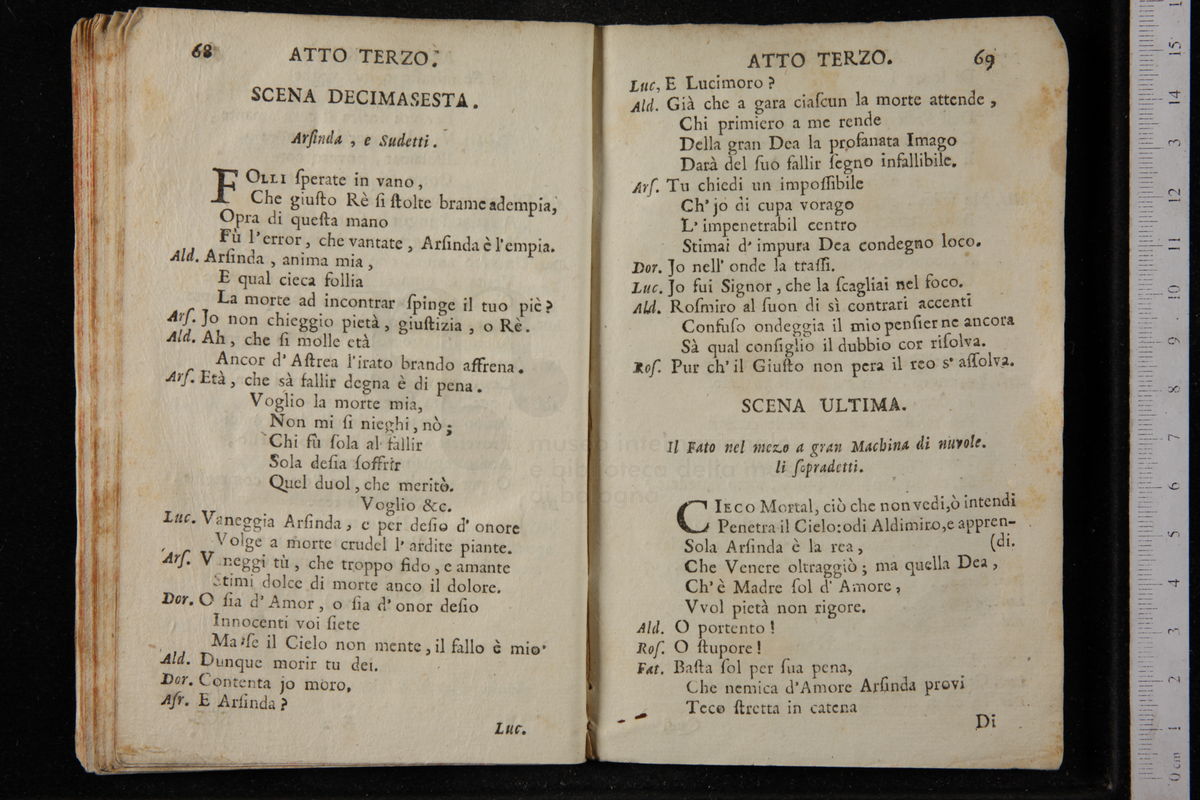 68 ATTO TERZO.
SCENA DECIMASESTA.
Arſinda, e Sudetti.
FOLLI ſperate in vano,
Che giuſto Rè ſi ſtolte brame adempia,
Opra di queſta mano
Fù l'error, che vantate, Arſinda è l'empia.
Ald. Arſinda, anima mia,
E qual cieca follia
La morte ad incontrar ſpinge il tuo piè?
Arſ. Jo non chieggio pietà, giuſtizia, o Rè.
Ald. Ah, che ſi molle età
Ancor d'Aſtrea l'irato brando affrena.
Arſ. Età, che sà fallir degna è di pena.
Voglio la morte mia,
Non mi ſi nieghi, nò;
Chi fù ſola al fallir
Sola deſia ſoffrir
Quel duol, che meritò.
Voglio &c.
Luc. Vaneggia Arſinda, e per deſio d'onore
Volge a morte crudel l'ardite piante.
Arſ. V neggi tù, che troppo fido, e amante
Stimi dolce di morte anco il dolore.
Dor. O ſia d'Amor, o ſia d'onor deſio
Innocenti voi ſiete
Ma ſe il Cielo non mente, il fallo è mio.
Ald. Dunque morir tu dei.
Dor. Contenta jo moro,
Aſr. E Arſinda?
Luc.
ATTO TERZO. 69
Luc, E Lucimoro?
Ald. Già che a gara ciaſcun la morte attende,
Chi primiero a me rende
Della gran Dea la profanata Imago
Darà del ſuo fallir ſegno infallibile.
Arſ. Tu chiedi un impoſſibile
Ch'jo di cupa vorago
L'impenetrabil centro
Stimai d'impura Dea condegno loco.
Dor. Jo nell'onde la traſſi.
Luc. Jo fui Signor, che la ſcagliai nel foco.
Ald. Roſmiro al ſuon di sì contrari accenti
Confuſo ondeggia il mio penſier ne ancora
Sà qual conſiglio il dubbio cor riſolva.
Roſ. Pur ch'il Giuſto non pera il reo s'aſſolva.
SCENA ULTIMA.
Il Fato nel mezo a gran Machina di nuvole.
li ſopradetti.
CIECO Mortal, ciò che non vedi, ò intendi
Penetra il Cielo: odi Aldimiro, e appren-
Sola Arſinda è la rea, (di.
Che Venere oltraggiò; ma quella Dea,
Ch'è Madre ſol d'Amore,
Vvol pietà non rigore.
Ald. O portento!
Roſ. O ſtupore!
Fat. Baſta ſol per ſua pena,
Che nemica d'Amore Arſinda provi
Teco ſtretta in catena
Di
museo inte
biblioteca della m
di bologna
0 cm 1 2 3 4 5 6 7 8 9 10 11 12 13 14 15